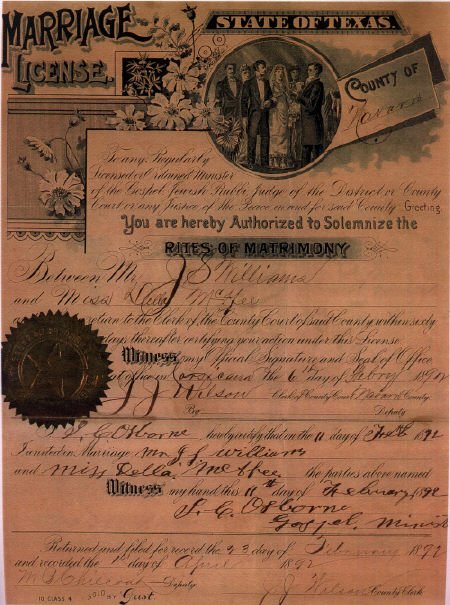 MARRIAGE
LICENSE.
STATE OF TEXAS.
COUNTY OF
Navarro
To any Regularly
Licensed or Ordained Minister
of the Gospel, Jewish Rabbi, Judge of the District or County
Court or any Justice of the Peace in and for said County Greeting
You are hereby Authorized to Solemnize the
RITES OF MATRIMONY
Between Mr J S Williams
and Miss McKee
return to the Clerk of the County Court of said County within sixty
days thereafter certifying your action under this License
Witness my Official Signature and Seal of Office
at office in Corsicana the 6 day of 1892
J J Wilson Clerk of County Court Navarro County.
By Deputy
I S. C. Osborne hereby certify that on the 11 day of Feb 1892
I united in Marriage Mr J S Williams
and Miss Della McKee the parties above named
Witness my hand this 11th day of February 1892
S. C. Osborne
Gospel Minist
Returned and filed for record the 23 day of February 1892
and recorded the day of April 1892
Deputy J J Wilson County Clerk
10 CLASS 4